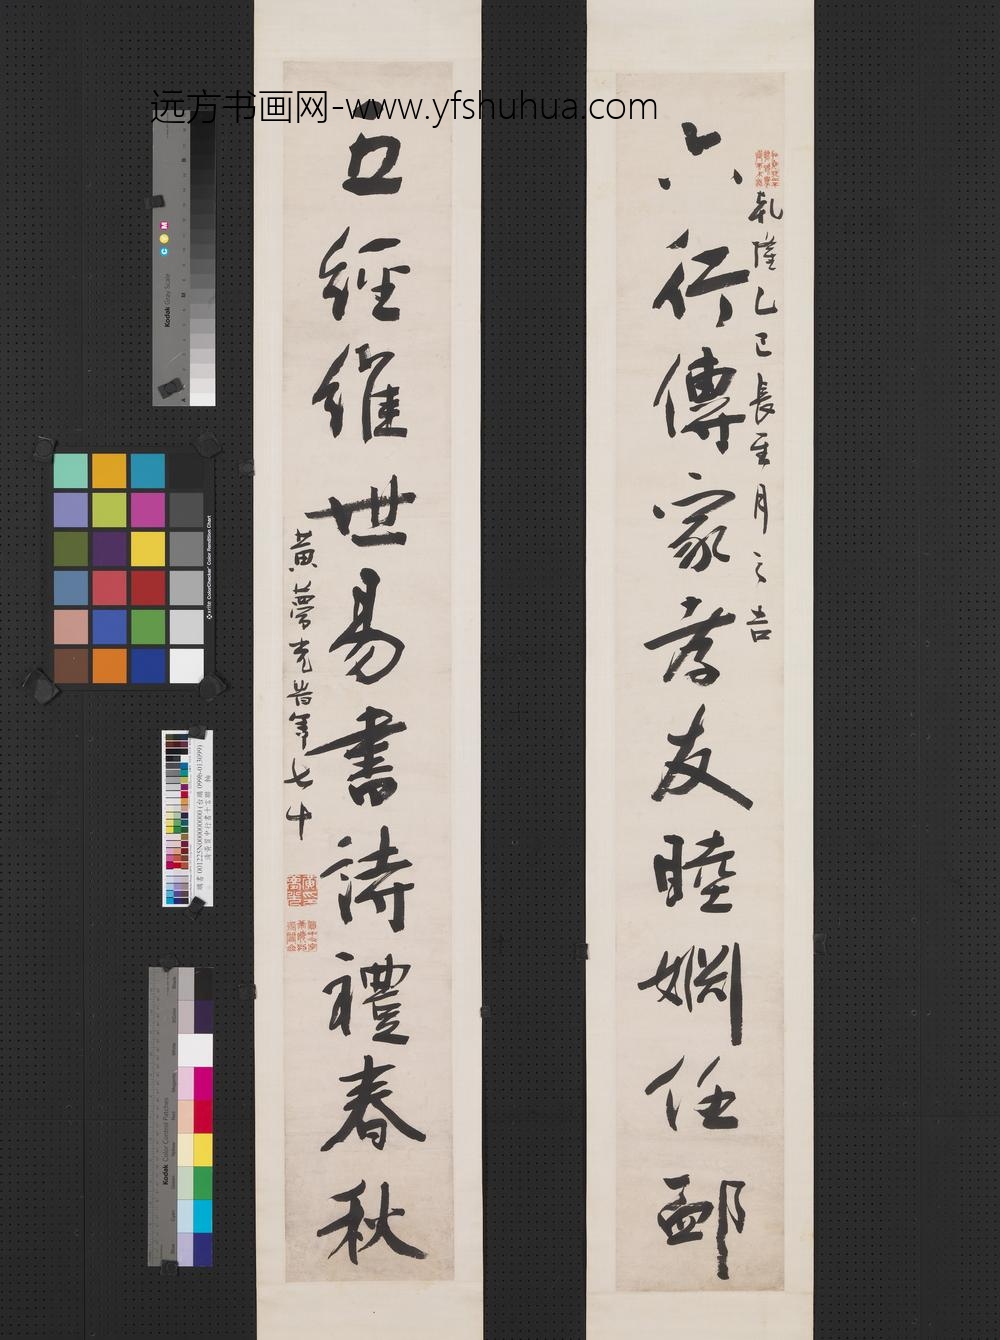 远方书画网-www.yfshuhua.com
乾隆乙巳長至月之吉
六行傳家孝友睦婣任卹
五經維世易書詩禮春秋
黃夢光昔年七十
Kodak Gray Scale
C Y M
ColorChecker Color Rendition Chart
Kodak Color Control Patches